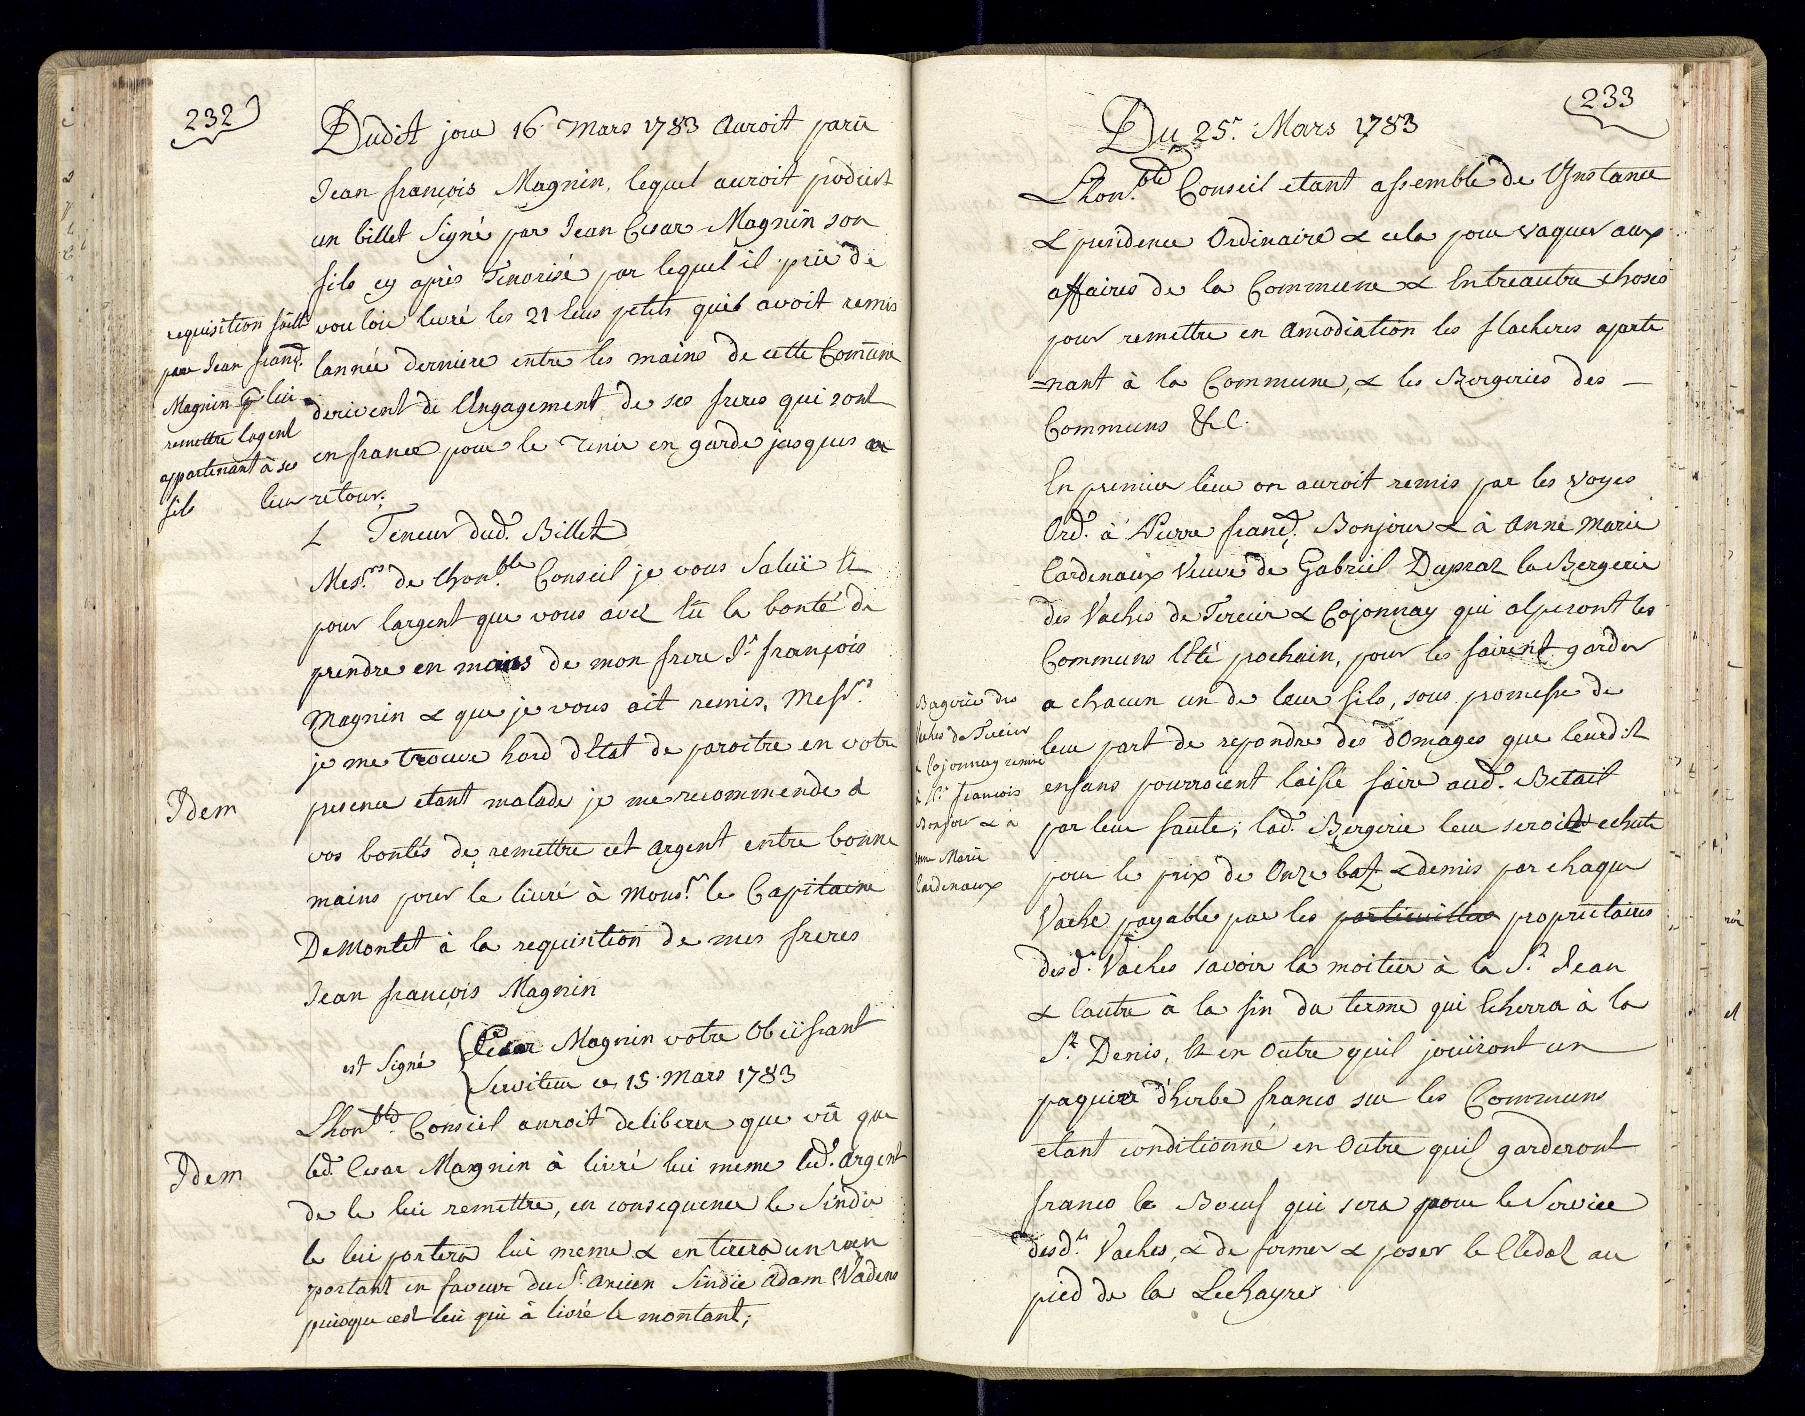 232
Dudit jour 16. Mars 1783 Auroit parû
Jean françois Magnin, lequel auroit poduist
un billet Signé par Jean Cesar Magnin son
fils cy après Tenorisé par lequel il prie de
vouloir livré les 21 leus petits quil avoit remis
lannée derniere entre les mains de cette Comune
derivent de lEngagement de ses freres qui sont
en france pour le Tenir en garde jusques a
leur retour;
requisition faitte
par Jean franç.
Magnin p lui
remettre largent
appartenant à ses
fils
Teneur dud. Billet
Mes.rs de lhon.ble Conseil je vous Salüe Et
pour largent que vous avez Eü la bonté de
prendre en mains de mon frere J.n françois
Magnin & que je vous ait remis, Mess.rs
je me trouve hord dEtat de paroitre en votre
presence etant malade je me recommende à
vos bontés de remettre cet argent entre bonne
mains pour le livré à Mons.r le Capitaine
DeMontet à la requisition de mes freres
Jean françois Magnin
Idem
est Signé
Cesar Magnin votre Obeissant
Serviteur ce 15. Mars 1783
Lhon.ble Conseil auroit deliberer que vû que
led. Cesar Magnin à livré lui meme led. argent
de le lui remettre, en consequence le Sindic
le lui portera lui meme & en tirera un reçu
portant en faveur du S.r ancien Sindic Adam Wadens
puisque cest lui qui à livré le montant;
Idem
233
Du 25.e Mars 1783
Lhon.ble Conseil etant assemblé de lInstance
& presidence Ordinaire & cela pour vaquer aux
affaires de la Commune & Entreautre choses
pour remettre en Amodiation les flacheres aparte
=nant à la Commune, & les Bergeries des –
Communs &c.
En premier lieu on auroit remis par les voyes
Ord. à Pierre franç. Bonjour & à Anne Marie
Cardinaux Veuve de Gabriel Dupraz la Bergerie
des Vaches de Tercier & Cojonnay qui alperont les
Communs lEté prochain, pour les fairent garder
a chacun un de leur fils, sous promesse de
leur part de repondre des dOmages que leurdit
enfans pourroient laissé faire aud. Betail
par leur faute; lad. Bergerie leur seroit echute
pour le prix de Onze batz & demis par chaque
Vache payable par les particuilliers proprietaires
desd. Vaches savoir la moitier à la S.t Jean
& lautre à la fin du terme qui Echerra à la
S.t Denis, Et en Outre quil jouiront un
paquire d'herbe franco sur les Communs
etant conditionné en Outre quil garderont
franco le Boeuf qui sera pour le Service
desd.tes Vaches, & de former & poser le Clédal au
pied de la Lechayre
Bergerie des
Vaches de Tercier
& Cojonnay remise
à P.re françois
Bonjour & à
Anne Marie
Cardinaux